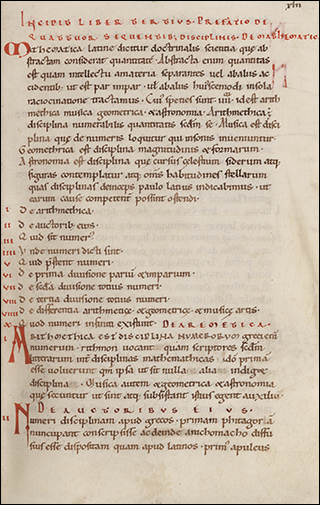 xlii
INCIPIT LIBER TERTIUS· PREFATIO DE
QUATTUOR SEQUENTIBUS DISCIPLINIS· DE MATHEMATICA
Mathematica latine dicitur doctrinalis scientia que ab
stractam considerat quantitatē· Abstracta enim quantitas
est quam intellectu a materia separantes vel ab aliis ac
cidentibus ut est par impar vel ab aliis huiscemodi in sola
ratiocinatione tractamus· Cui species sunt ·iiii· id est arith
methica musica geometrica ⁊ astronomia· Arithmethica ē
disciplina numerabilis quantitatis scdm se· Musica est disci
plina que de numeris loquitur qui in sonis inveniuntur
Geomethrica est disciplina magnitudinis ⁊ formarum·
Astronomia est disciplina que cursus celestium siderum atq;
figuras contemplatur atq; omīs habitudines stellarum
quas disciplinas deinceps paulo latius indicabimus· ut
earum cause competenter possint ostendi·
i De arithmethica·
ii De auctorib; eius·
iii Quid sit numerus
iiii Unde numeri dicti sint·
v Quid prestent numeri·
vi De prima divisione parium ⁊ imparium·
vii De scda divisione totius numeri·
viii De tertia divisione totius numeri·
viiii De differentia arithmetice· ⁊ geometrice· ⁊ musice artis·
x Quod numeri infiniti existunt· DE ARIMETICA·
i ARITHMETHICA EST DISCIPLINA NUMERORUM greci enī
numerum· rithmon vocant· quam scriptores sclariū
litterarum inter disciplinas mathematicas· ideo primā
esse voluerunt qm̄ ipsa ut sit nulla alia indiget
disciplina· Musica autem ⁊ geometrica ⁊ astronomia
que secuntur ut sint atq; subsistant istius egent auxilio·
DE AUCTORIBUS EIUS·
ii Numeri disciplinam apud grecos· primum phitagorā
nuncupant conscripsisse ac deinde a nichomacho diffu
sius esse dispositam quam apud latinos· primus apuleius